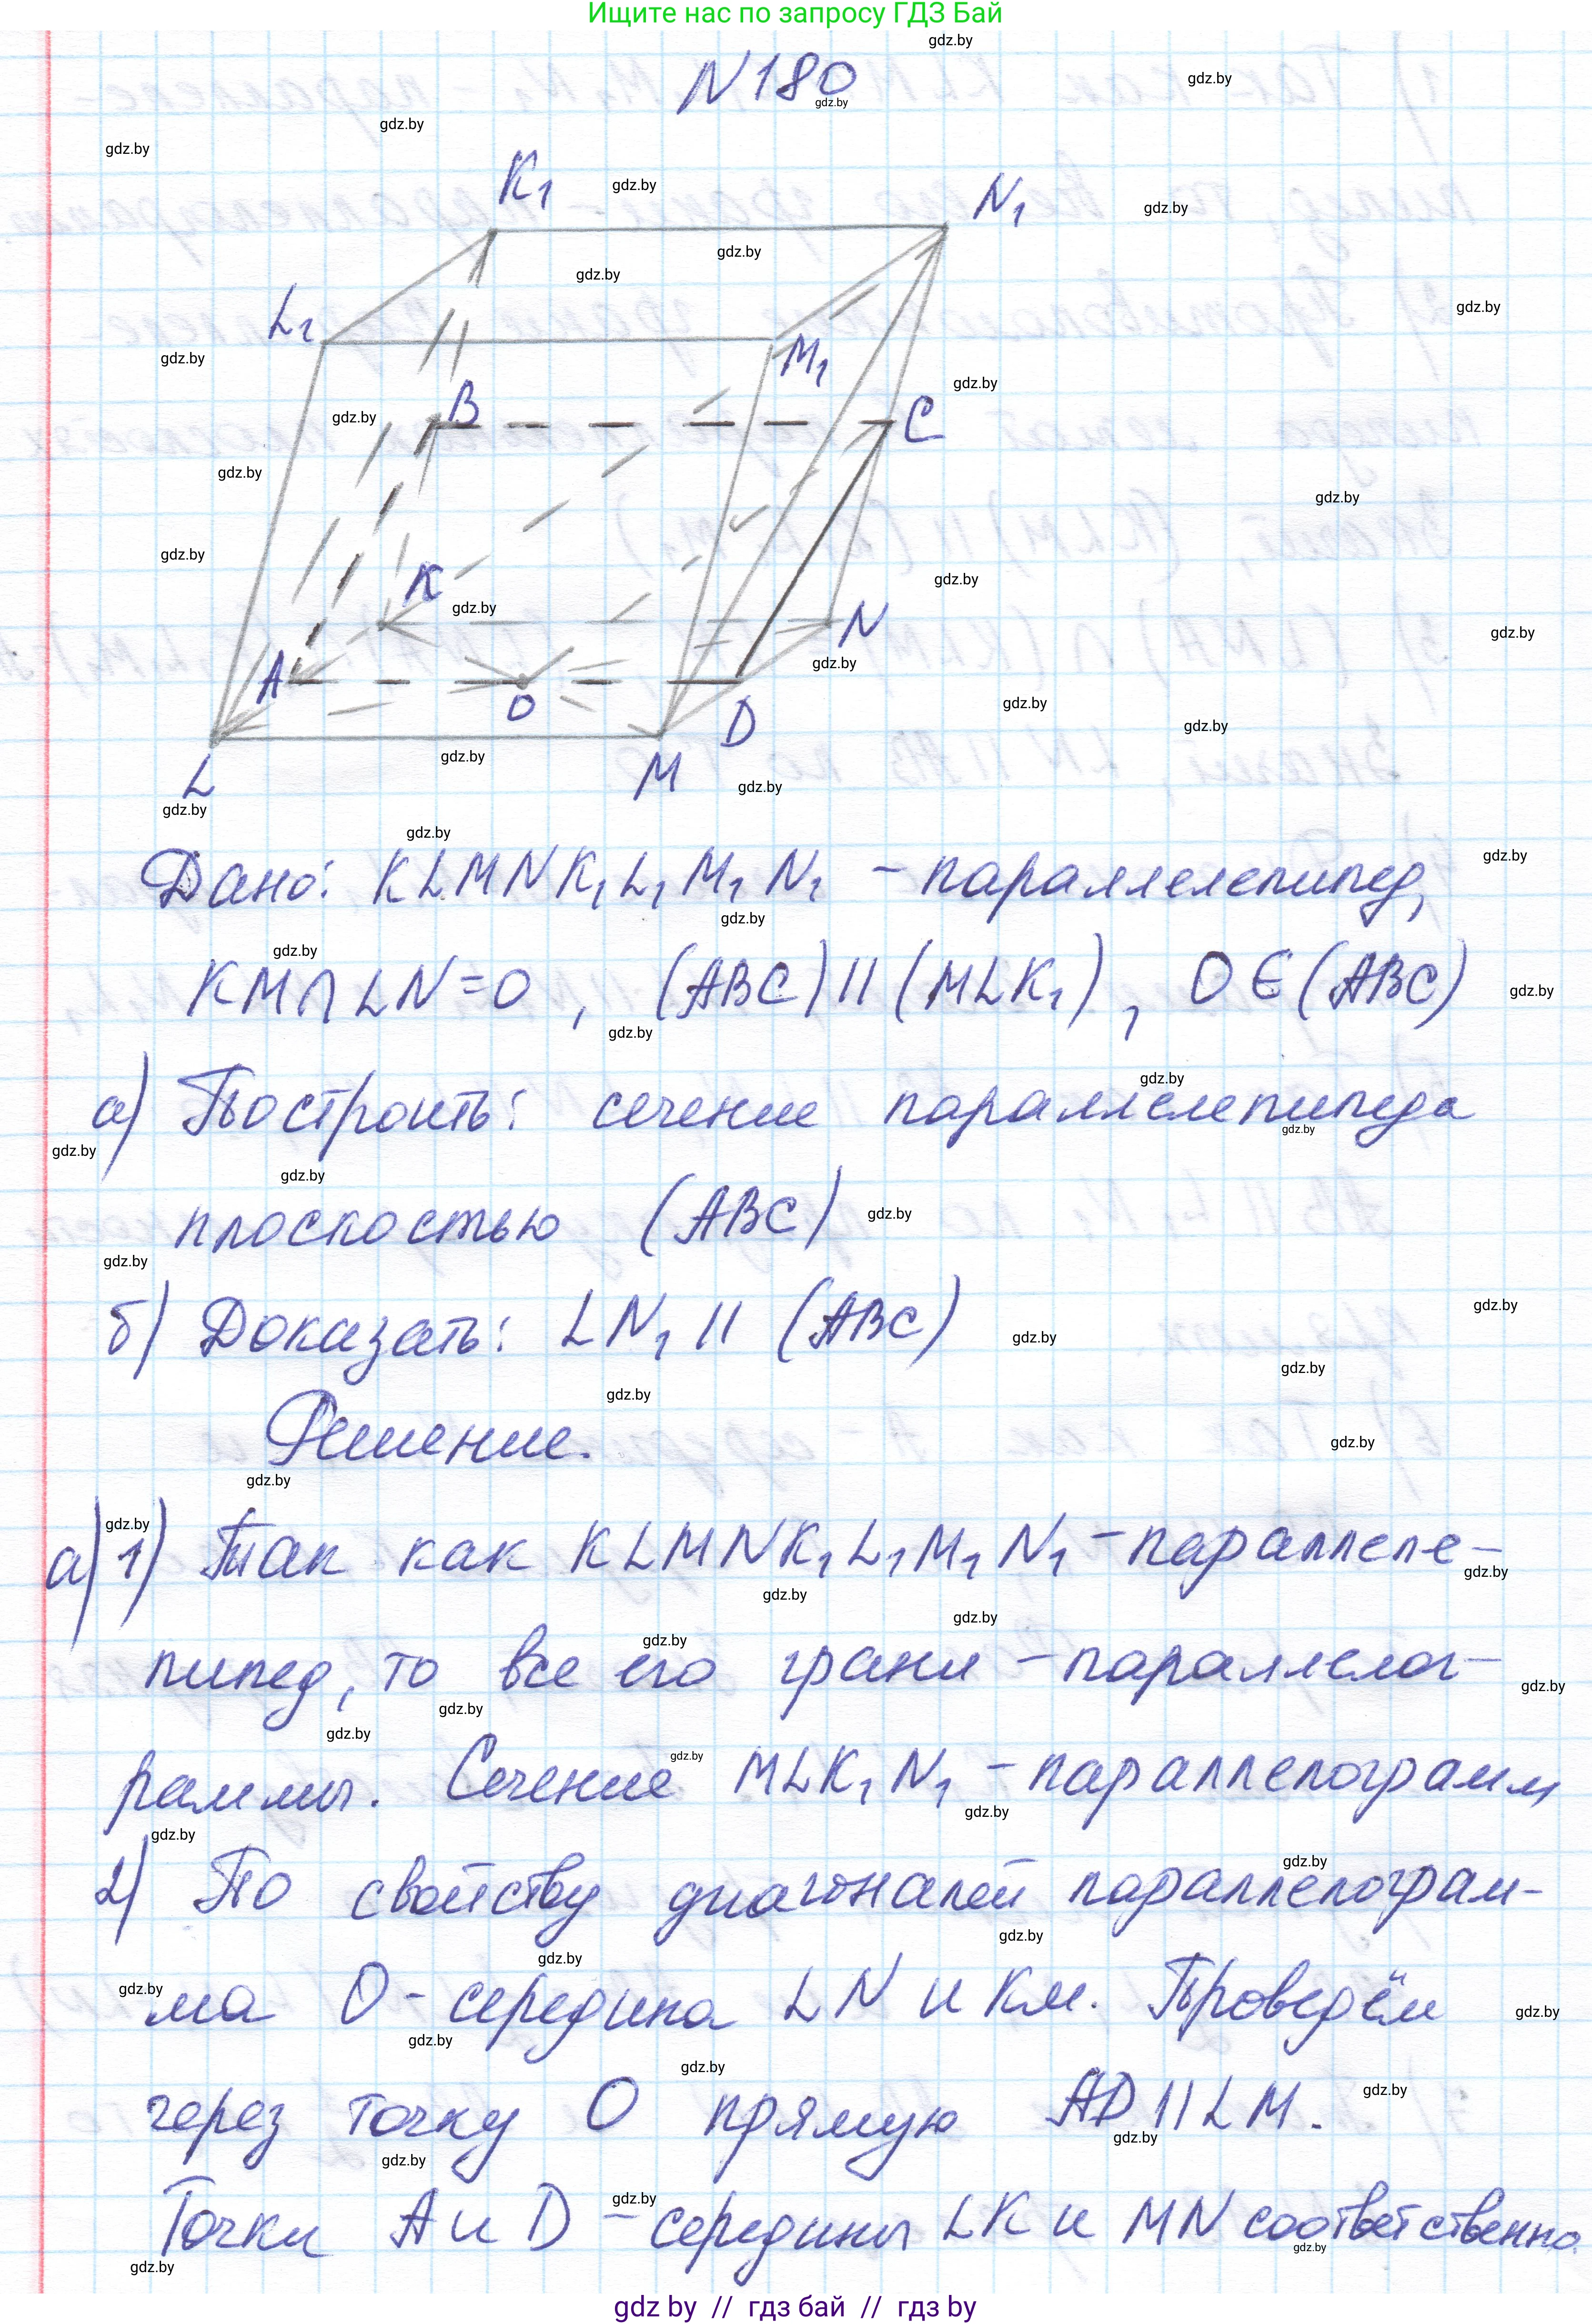 Ищите нас по запросу ГДЗ Бай
N180
K₁
N₁
L₁
M₁
B
C
K
N
A
O
D
L
M
Дано: KLMNK₁L₁M₁N₁ - параллелепипед,
KM∩LN=O, (ABC)||(MLK₁), O∈(ABC)
а) Построить: сечение параллелепипеда
плоскостью (ABC)
б) Доказать: LN₁ || (ABC)
Решение.
а) 1) Так как KLMNK₁L₁M₁N₁ - параллеле-
пипед, то все его грани - параллелог-
раммы. Сечение MLK₁N₁ - параллелограмм
2) По свойству диагоналей параллелограм-
ма O - середина LN и KM. Проведём
через точку O прямую AD||LM.
Точки A и D - середины LK и MN соответственно.
gdz by // гдз бай // гдз by